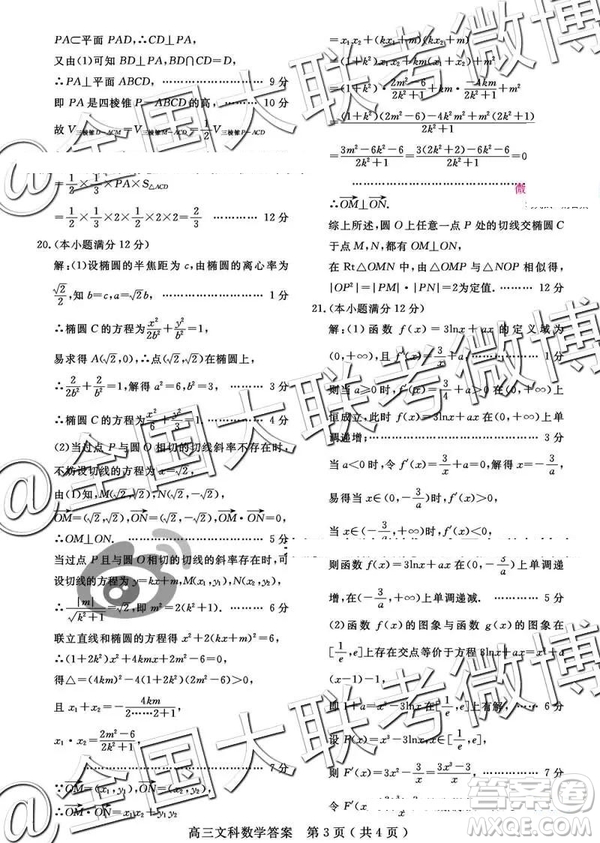 PA⊂平面 PAD,∴CD⊥PA,
又由(1)可知 BD⊥PA,BD∩CD=D,
∴PA⊥平面 ABCD, ………… 9 分
即 PA 是四棱锥 P-ABCD 的高, ……… 10 分
故 V三棱锥D-ACM=V三棱锥M-ACD=1/2 V三棱锥P-ACD
=1/2×1/3×PA×S△ACD
=1/2×1/3×2×2=2/3. ………… 12 分
20.(本小题满分 12 分)
解:(1)设椭圆的半焦距为 c,由椭圆的离心率为
√2/2,知 b=c,a=√2b, ………… 1 分
∴椭圆 C 的方程为 x²/2b²+y²/b²=1,
易求得 A(√2,0),∴点(√2,√2)在椭圆上,
∴2/2b²+2/b²=1,解得 a²=6,b²=3,
∴椭圆 C 的方程为 x²/6+y²/3=1. ………… 4 分
(2)当过点 P 与圆 O 相切的切线斜率不存在时,
不妨设切线的方程为 x=√2,
由(1)知,M(√2,√2),N(√2,-√2),
OM=(√2,√2),ON=(√2,-√2),OM·ON=0,
∴OM⊥ON. ………… 5 分
当过点 P 且与圆 O 相切的切线的斜率存在时,可
设切线的方程为 y=kx+m,M(x₁,y₁),N(x₂,y₂),
∴|m|/√(k²+1)=√2,即 m²=2(k²+1). ……… 6 分
联立直线和椭圆的方程得 x²+2(kx+m)²=6,
∴(1+2k²)x²+4kmx+2m²-6=0,
得△=(4km)²-4(1+2k²)(2m²-6)>0,
且 x₁+x₂=-4km/2……2+1,
x₁·x₂=2m²-6/2k²+1. ………… 7 分
∵OM=(x₁,y₁),ON=(x₂,y₂),
∴OM·ON
=x₁x₂+(kx₁+m)(kx₂+m)
=(1+k²)x₁x₂+km(x₁+x₂)+m²
=(1+k²)·2m²-6/2k²+1+km·-4km/2k²+1+m²
=(1+k²)(2m²-6)-4k²m²+m²(2k²+1)/2k²+1
=3m²-6k²-6/2k²+1=3(2k²+2)-6k²-6/2k²+1=0
…………………
微
∴OM⊥ON.
综上所述,圆 O 上任意一点 P 处的切线交椭圆 C
于点 M,N,都有 OM⊥ON,
在 Rt△OMN 中,由△OMP 与△NOP 相似得,
|OP²|=|PM|·|PN|=2为定值. ……… 12 分
21.(本小题满分 12 分)
解:(1)函数 f(x)=3lnx+ax 的定义域为
(0,+∞),且 f′(x)=3/x+a.………… 1 分
则当 a≥0 时,f′(x)=3/x+a>0 在(0,+∞)上
恒成立,此时 f(x)=3lnx+ax 在(0,+∞)上单
调递增; ………… 3 分
当 a<0 时,令 f′(x)=3/x+a=0,解得 x=-3/a,
易得当 x∈(0,-3/a)时,f′(x)>0,
当 x∈(-3/a
则函数 f(x)=3lnx+ax 在(0,-3/a)上单调递
增,在(-3/a,+∞)上单调递减. ……… 5 分
(2)函数 f(x)的图象与函数 g(x)的图象在
[1/e,e]上存在交点等价于方程 3lnx+ax=x³+
(x-1)-1,
即 1+a=x³-3lnx 在[1/e,e]上有解. … 6 分
设 F(x)=x³-3lnx,x∈[1/e,e],
则 F′(x)=3x²-3/x=3x³-3/x,
令 F′(x)=0,即 3x³-3=0,解得 x=1. … 7 分
高三文科数学答案 第 3 页(共 4 页)
@全国大联考微博
@全国大联考微博